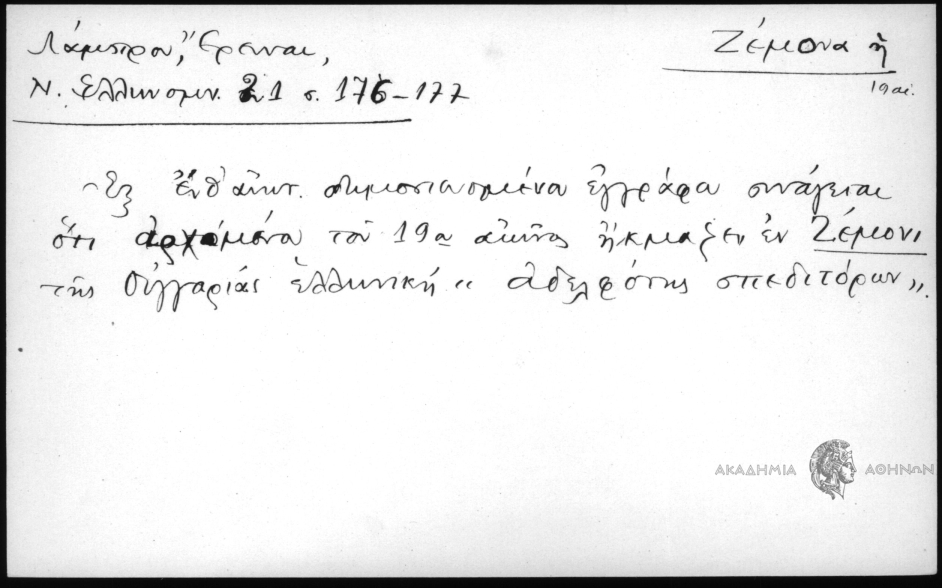 Λάμπρου, Έρευναι,
Ν. Ελληνομν. 21 σ. 176-177
Ζέμονα ἡ
19 αἰ.
Ἐξ ἐνθ' ἀνωτ. δημοσιευομένων ἐγγράφων συνάγεται
ὅτι ἀρχόμενα τοῦ 19ου αἰῶνος ἤκμαζεν ἐν Ζέμονι
τῆς Οὑγγαρίας ἑλληνική "ἀδελφότης σπεδιτόρων".
ΑΚΑΔΗΜΙΑ ΑΘΗΝΩΝ